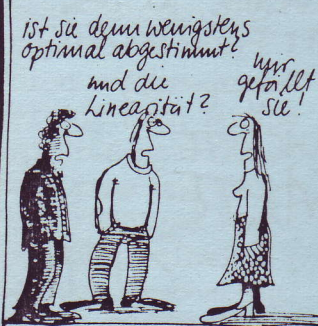 ist sie denn wenigstens
optimal abgestimmt?
und die
Linearität?
mir
gefällt
sie!